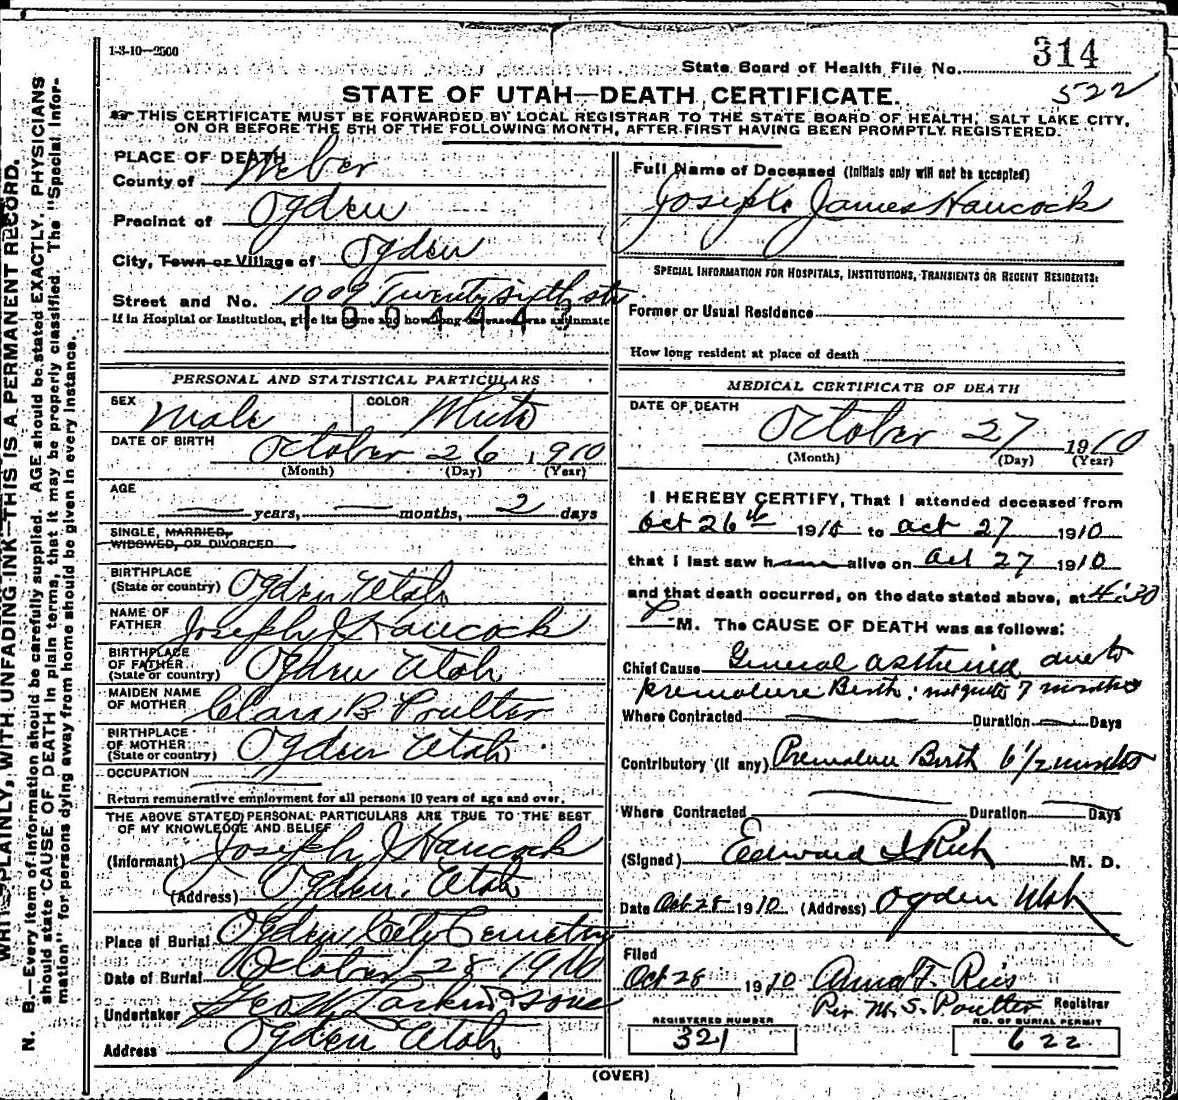 1-3-10—2500
State Board of Health File No. 314
522
STATE OF UTAH—DEATH CERTIFICATE.
THIS CERTIFICATE MUST BE FORWARDED BY LOCAL REGISTRAR TO THE STATE BOARD OF HEALTH, SALT LAKE CITY,
ON OR BEFORE THE 5TH OF THE FOLLOWING MONTH, AFTER FIRST HAVING BEEN PROMPTLY REGISTERED.
PLACE OF DEATH
County of Weber
Precinct of Ogden
City, Town or Village of Ogden
Street and No. 1009 Twenty sixth str
If in Hospital or Institution, give its name and how long deceased was an inmate
Full Name of Deceased (Initials only will not be accepted)
Joseph James Hancock
SPECIAL INFORMATION FOR HOSPITALS, INSTITUTIONS, TRANSIENTS OR RECENT RESIDENTS:
Former or Usual Residence
How long resident at place of death
PERSONAL AND STATISTICAL PARTICULARS
SEX Male COLOR White
DATE OF BIRTH October 26, 1910
(Month) (Day) (Year)
AGE
— years, — months, 2 days
SINGLE, MARRIED,
WIDOWED, OR DIVORCED
BIRTHPLACE
(State or country) Ogden Utah
NAME OF
FATHER Joseph J Hancock
BIRTHPLACE
OF FATHER
(State or country) Ogden Utah
MAIDEN NAME
OF MOTHER Clara B Poulter
BIRTHPLACE
OF MOTHER
(State or country) Ogden Utah
OCCUPATION
Return remunerative employment for all persons 10 years of age and over.
THE ABOVE STATED PERSONAL PARTICULARS ARE TRUE TO THE BEST
OF MY KNOWLEDGE AND BELIEF
(Informant) Joseph J Hancock
(Address) Ogden, Utah
Place of Burial Ogden City Cemetery
Date of Burial October 28 1910
Undertaker Geo W Larkin & sons
Address Ogden Utah
MEDICAL CERTIFICATE OF DEATH
DATE OF DEATH
October 27 1910
(Month) (Day) (Year)
I HEREBY CERTIFY, That I attended deceased from
Oct 26th 1910 to Oct 27 1910
that I last saw h alive on Oct 27 1910
and that death occurred, on the date stated above, at 4:30
P M. The CAUSE OF DEATH was as follows:
Chief Cause General asthenia due to
premature Birth: not quite 7 months
Where Contracted — Duration — Days
Contributory (if any) Premature Birth 6 1/2 months
Where Contracted — Duration — Days
(Signed) Edward I Rich M. D.
Date Oct 28 1910 (Address) Ogden Utah
Filed
Oct 28 1910 Anna F. Reis
Per M. S. Poulter Registrar
REGISTERED NUMBER
321
NO. OF BURIAL PERMIT
622
(OVER)
WRITE PLAINLY, WITH UNFADING INK—THIS IS A PERMANENT RECORD.
N. B.—Every item of information should be carefully supplied. AGE should be stated EXACTLY. PHYSICIANS
should state CAUSE OF DEATH in plain terms, that it may be properly classified. The "Special Infor-
mation" for persons dying away from home should be given in every instance.